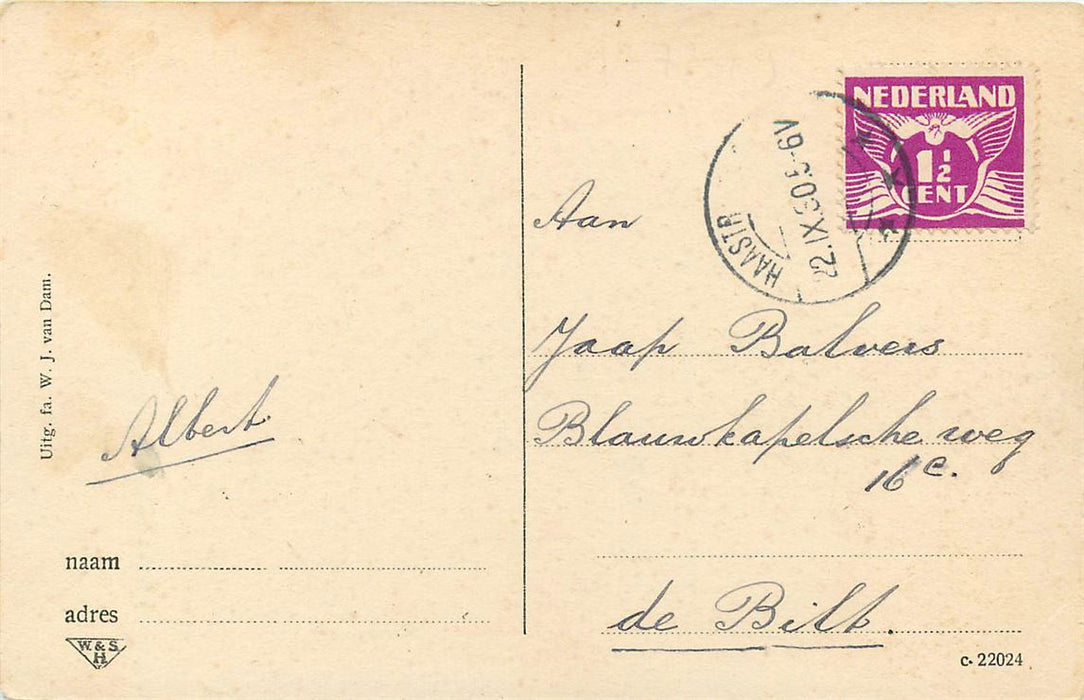 NEDERLAND
1½
CENT
HAASTR
22.IX.30.5-6V
Aan
Jaap Balvers
Blauwkapelsche weg
16 c.
de Bilt.
Albert
Uitg. fa. W. J. van Dam.
naam
adres
W. & S.
H
c. 22024